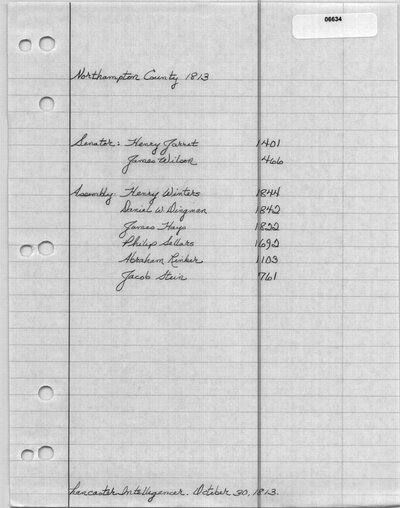 06634
Northampton County 1813
Senator: Henry Jarret 1401
James Wilson 466
Assembly: Henry Winters 1844
Danial W. Dingman 1842
James Hays 1822
Philip Sellars 1692
Abraham Rinker 1103
Jacob Stein 761
Lancaster Intelligencer. October 30, 1813.